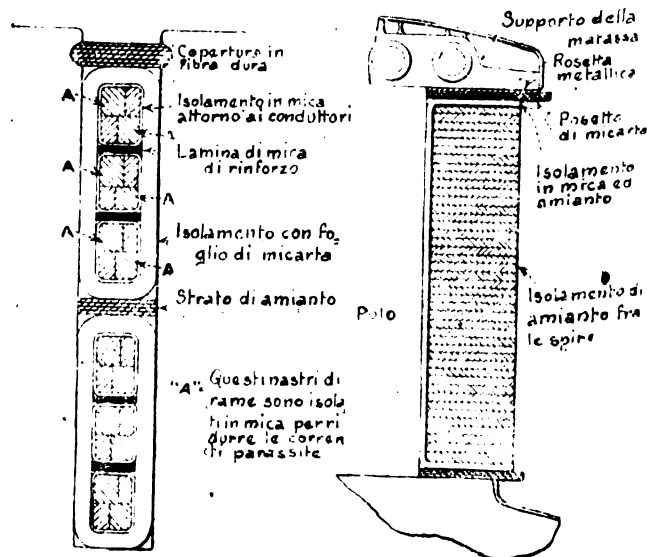 Copertura in
fibra dura
A
Isolamento in mica
attorno ai conduttori
Lamina di mica
di rinforzo
A
A
A
Isolamento con fo=
glio di micarta
A
Strato di amianto
"A"= Questi nastri di
rame sono isola
ti in mica per ri
durre le corren
ti parassite
Supporto della
matassa
Rosetta
metallica
Rosetta
di micarta
Isolamento
in mica ed
amianto
Polo
Isolamento di
amianto fra
le spire